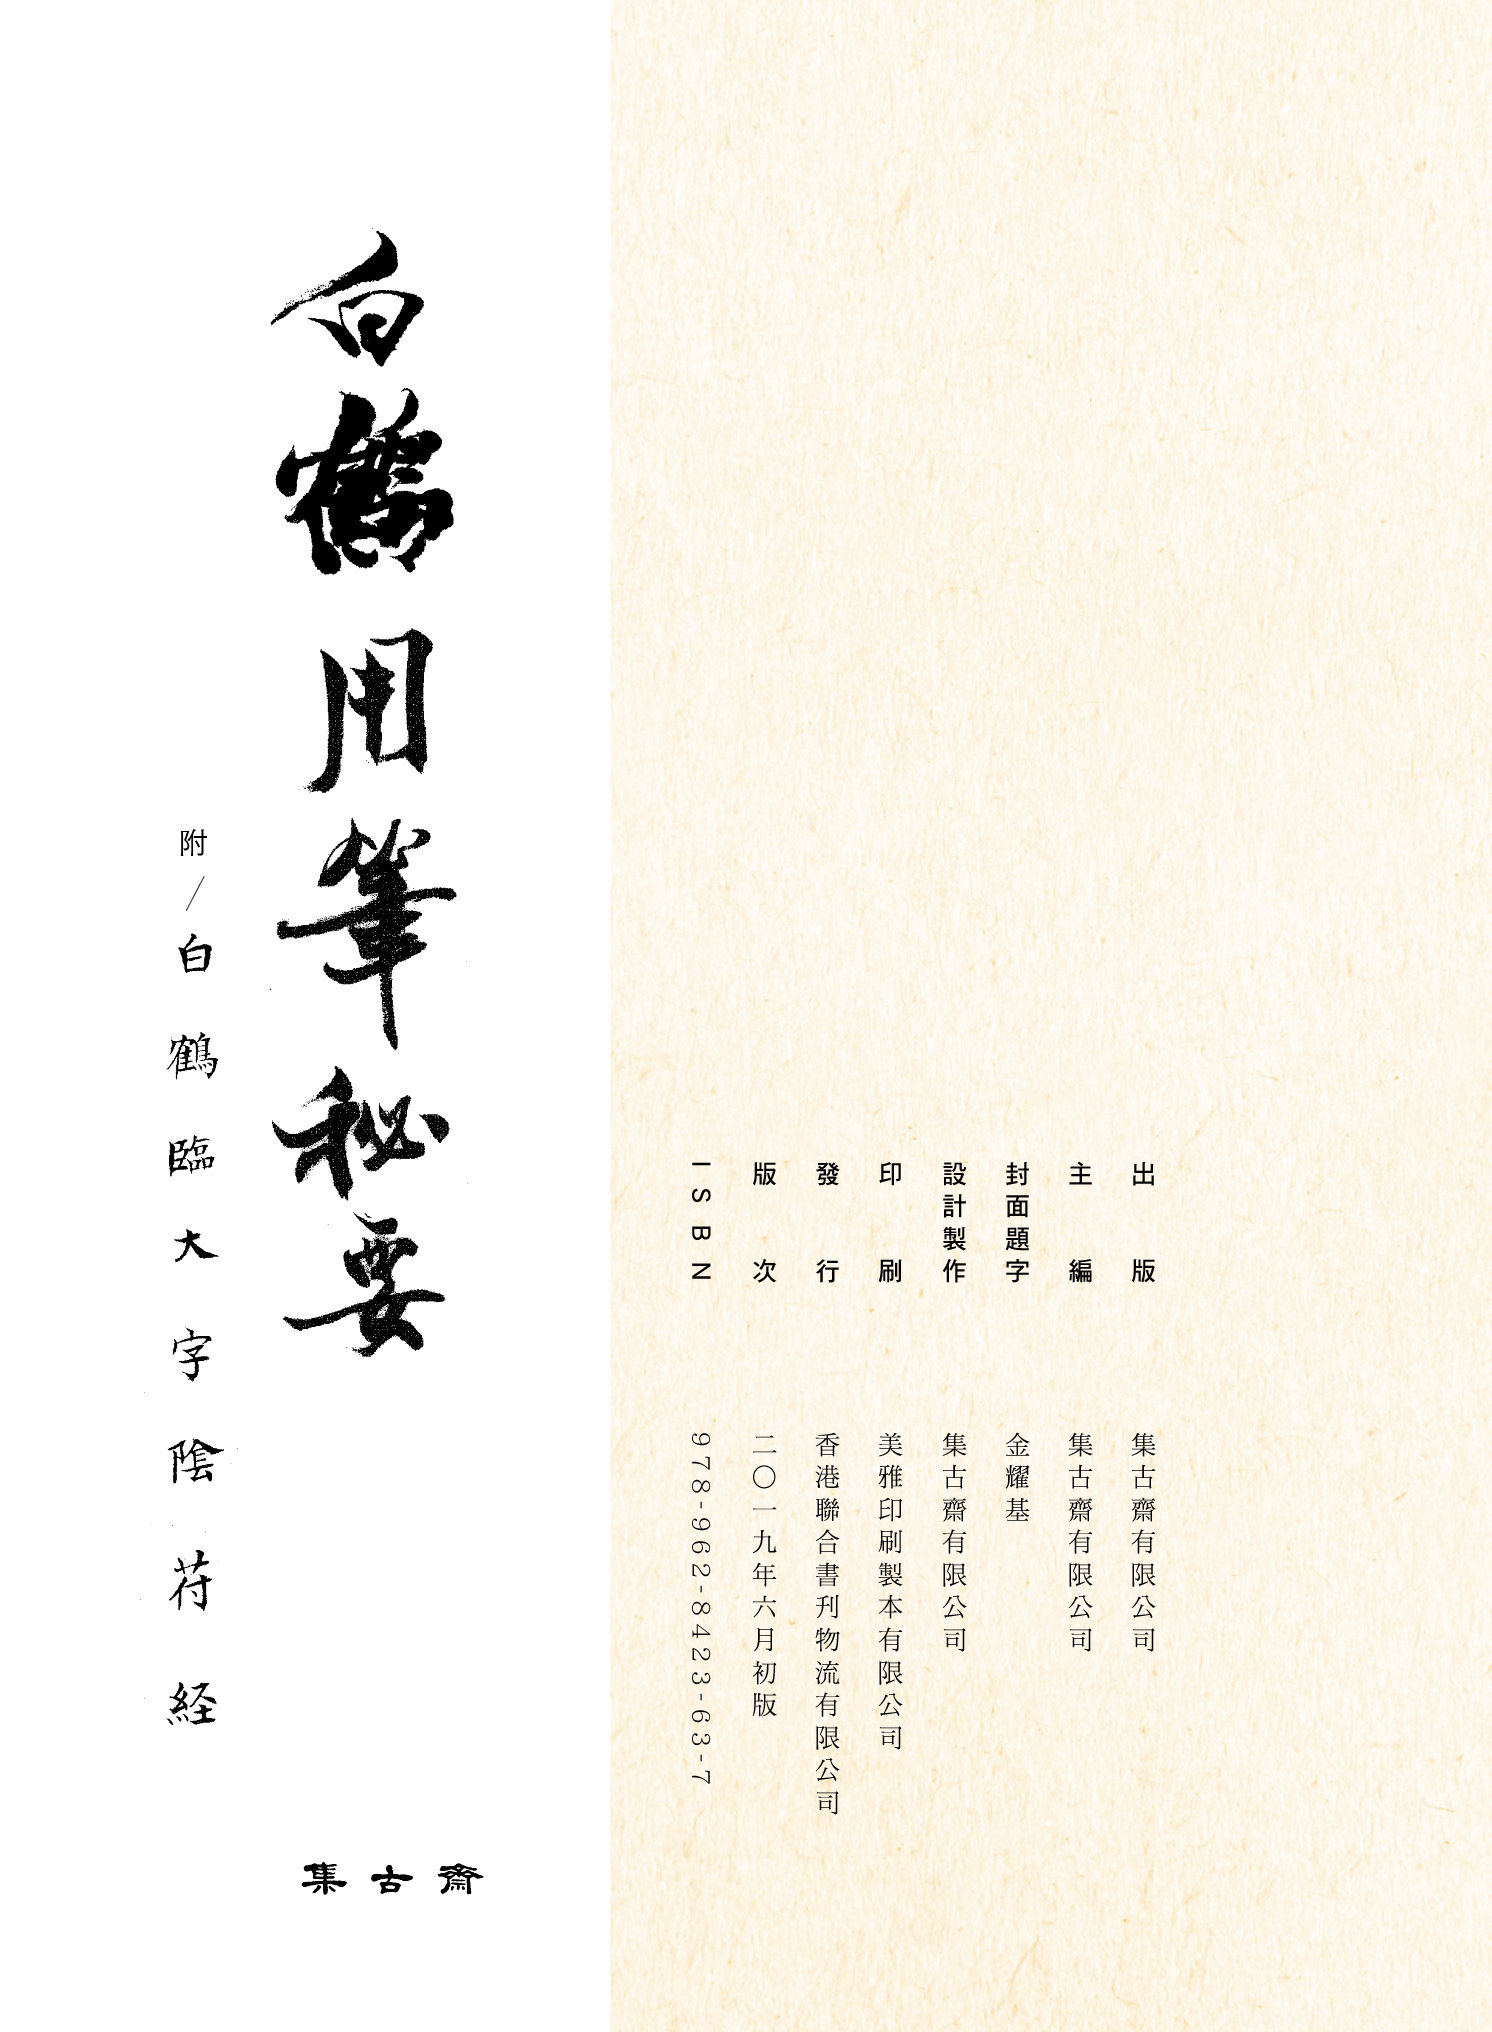 出版 集古齋有限公司
主編 集古齋有限公司
封面題字 金耀基
設計製作 集古齋有限公司
印刷 美雅印刷製本有限公司
發行 香港聯合書刊物流有限公司
版次 二〇一九年六月初版
ISBN 978-962-8423-63-7
白鶴用筆秘要
附/白鶴臨大字陰苻経
集古齋